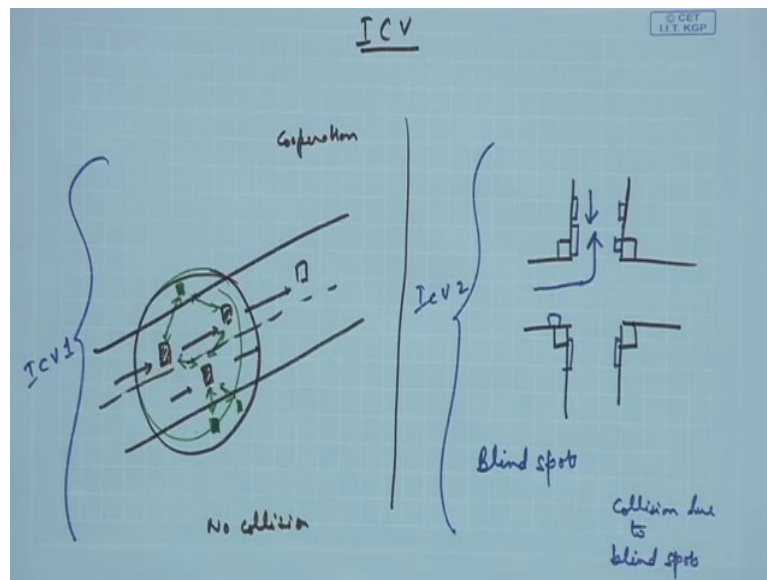 ICV
© CET
I.I.T. KGP
Cooperation
ICV1
No collision
ICV2
Blind spot
Collision due
to
blind spots